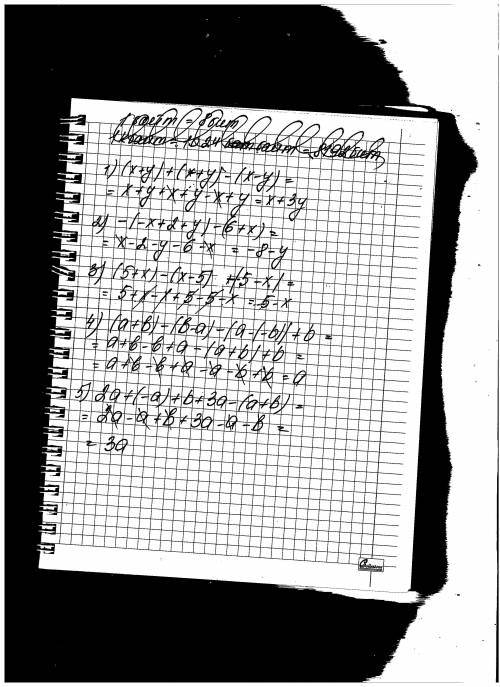 1 байт = 8 бит
1) (x+y)+(x+y)-(x-y)=
= x+y+x+y-x+y=x+3y
2) -(-x+2+y)-(6+x)=
= x-2-y-6-x = -8-y
3) (5+x)-(x-5)+(5-x)=
= 5+x-x+5-5-x=5-x
4) (a+b)-(b-a)-(a-(-b))+b=
= a+b-b+a-(a+b)+b=
= a+b-b+a-a-b+b=a
5) 2a+(-a)+b+3a-(a+b)=
= 2a-a+b+3a-a-b=
= 3a